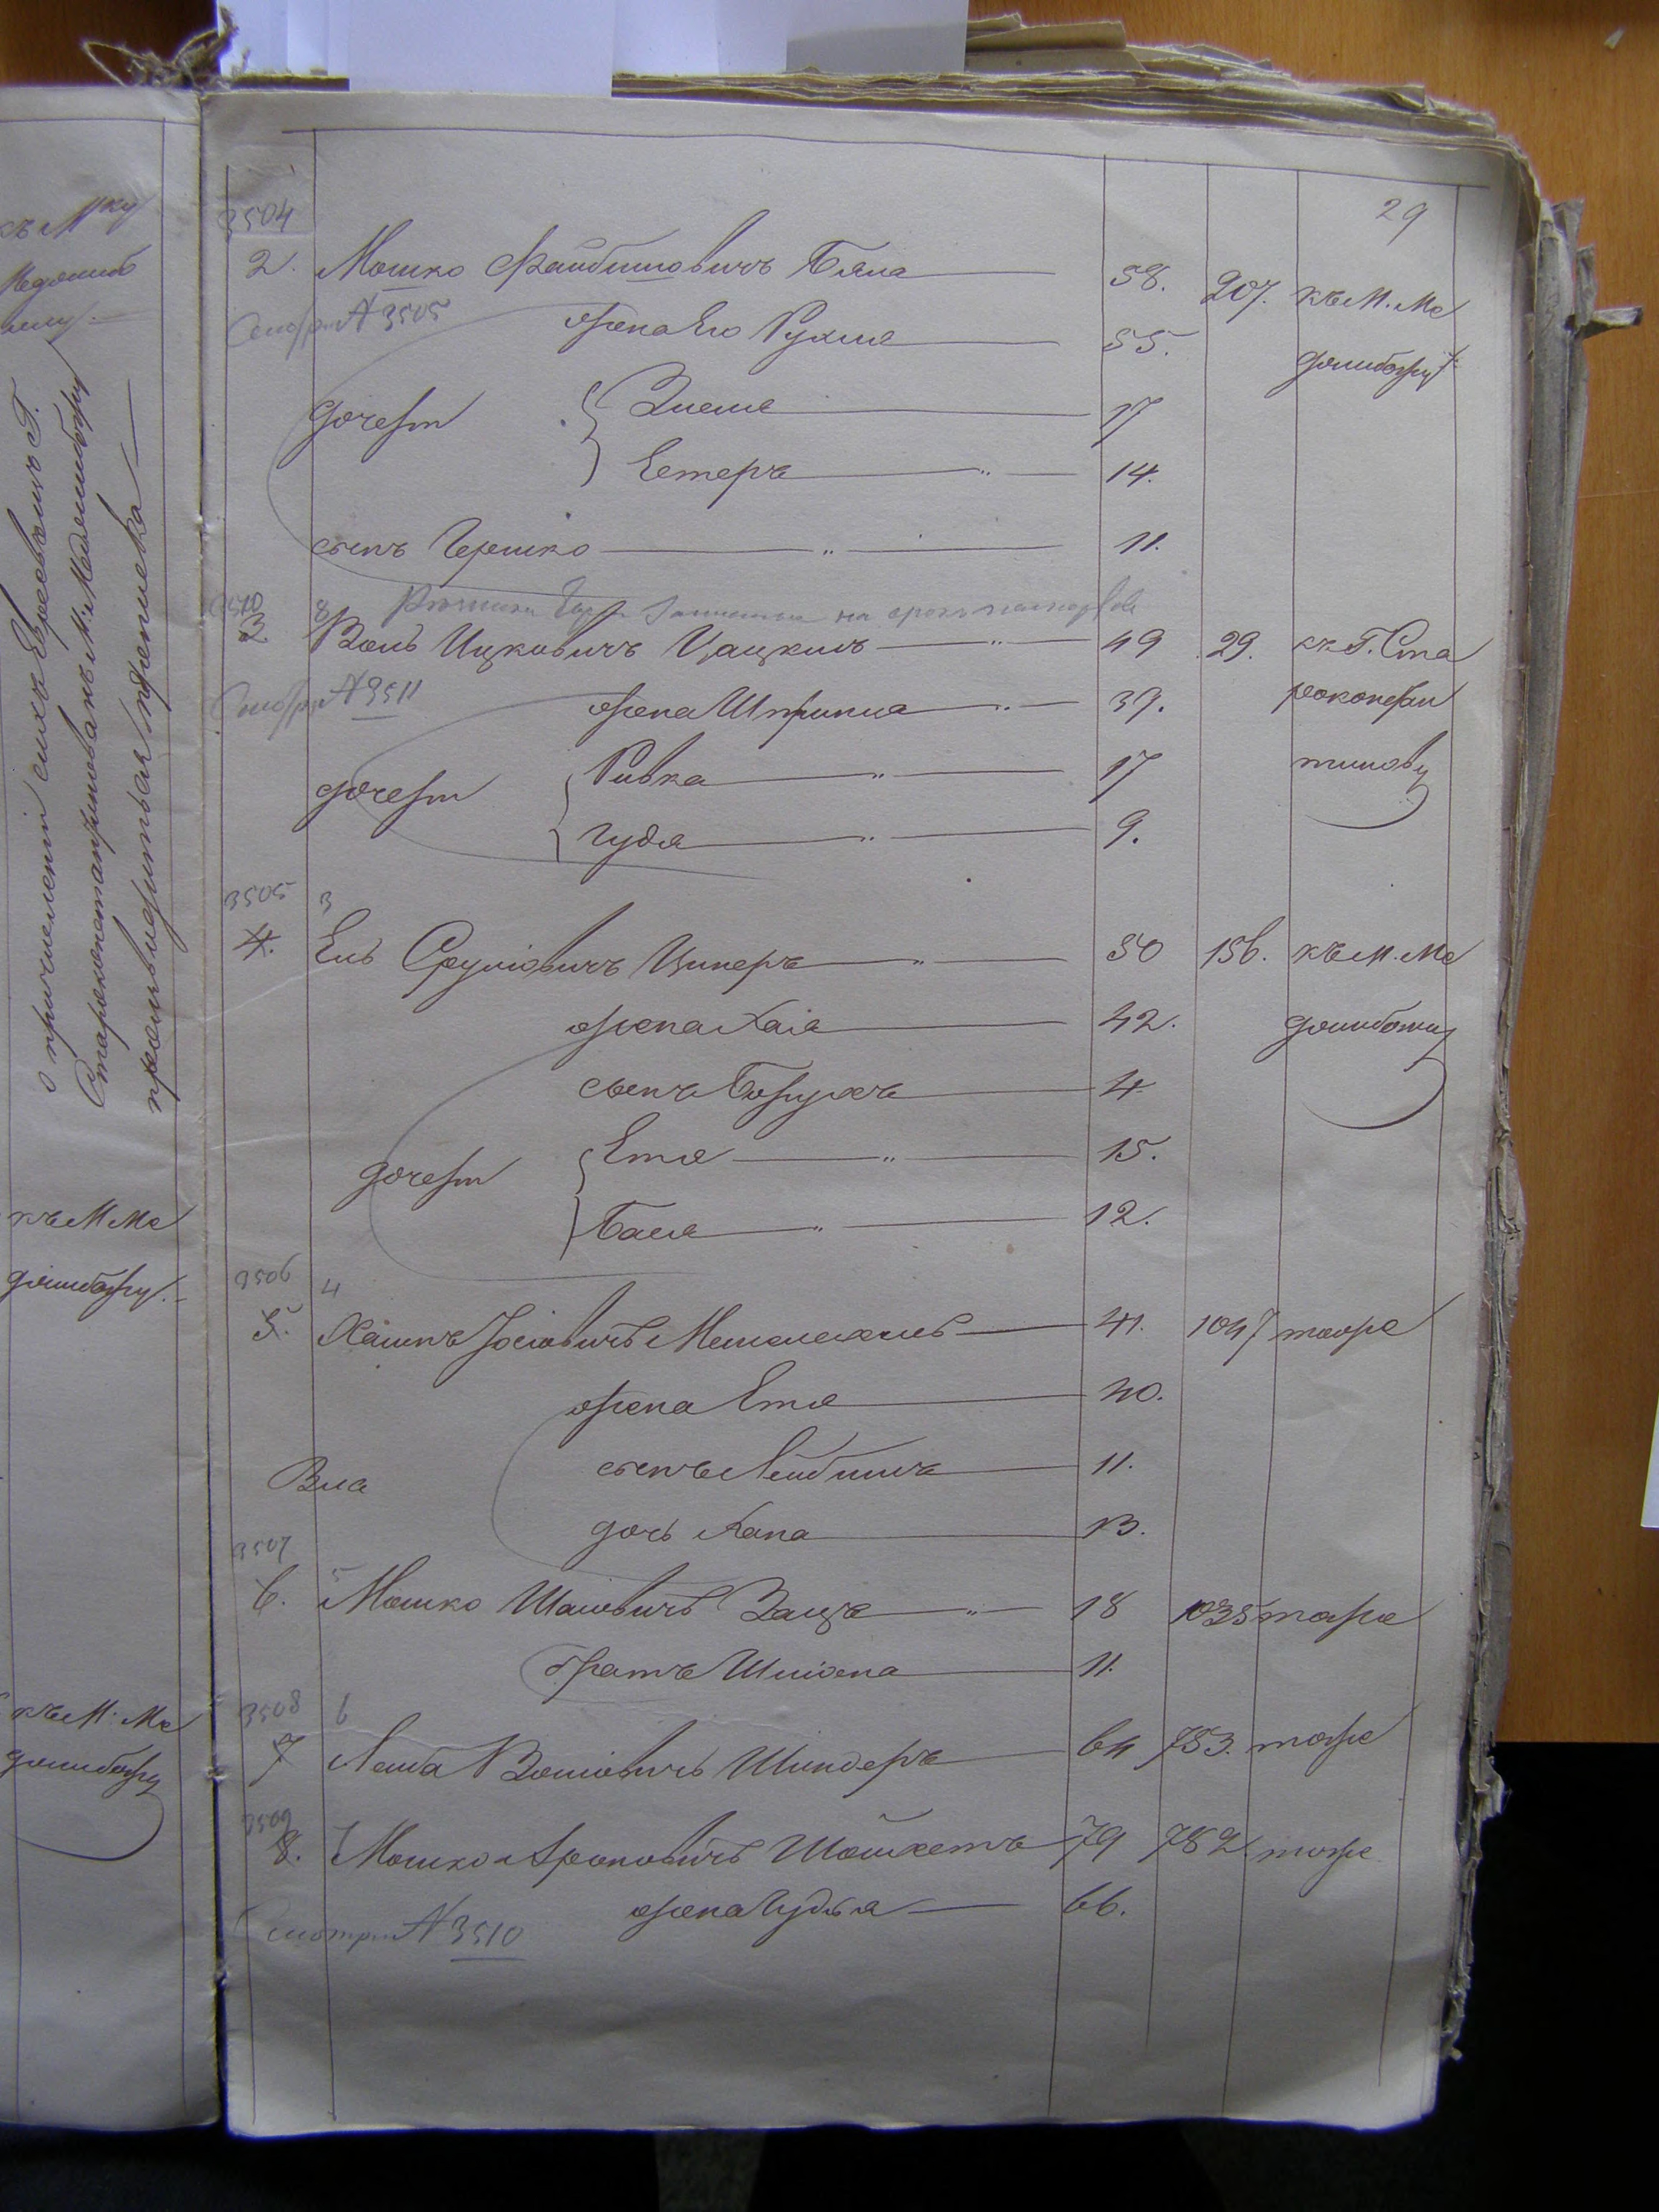 къ М.ку
Меджиб
о причисленіи сихъ Евреевъ къ Г.
Староконстантинову и къ М. Меджибожу
къ М. Ме
джибожу.
къ М. Ме
джибожу
29
3504
2. Мошко Файбишовичъ Бяла 58. 207. къ М. Ме
Смотри № 3505 жена Его Рухля 55. джибожу
дочери Злота 17
Естеръ 14.
сынъ Гершко 11.
3510 8
3 Воль Ицковичъ Цацкисъ 49 29. къ Г. Ста
Смотри № 3511 жена Шпринца 39. роконстан
дочери Ривка 17 тинову
Гудя 9.
3505 3
4. Ель Сруліовичъ Циперъ 50 156. къ М. Ме
жена Хая 42. джибожу
сынъ Борухъ 4
дочери Етя 15.
Бася 12.
3506 4
5. Хаимъ Іосіовичъ 41. 1047 тоже
жена Етя 40.
сынъ Лейбишъ 11.
дочь Хана 13.
3507 5
6. Мошко Шаіовичъ Заяцъ 18 1035 тоже
братъ Шліома 11.
3508 6
7 Лейба Воліовичъ Шиндеръ 64 783. тоже
3509 7
8. Мошко Ароновичъ Шойхетъ 79 782 тоже
жена Гудля 66.
Смотри № 3510